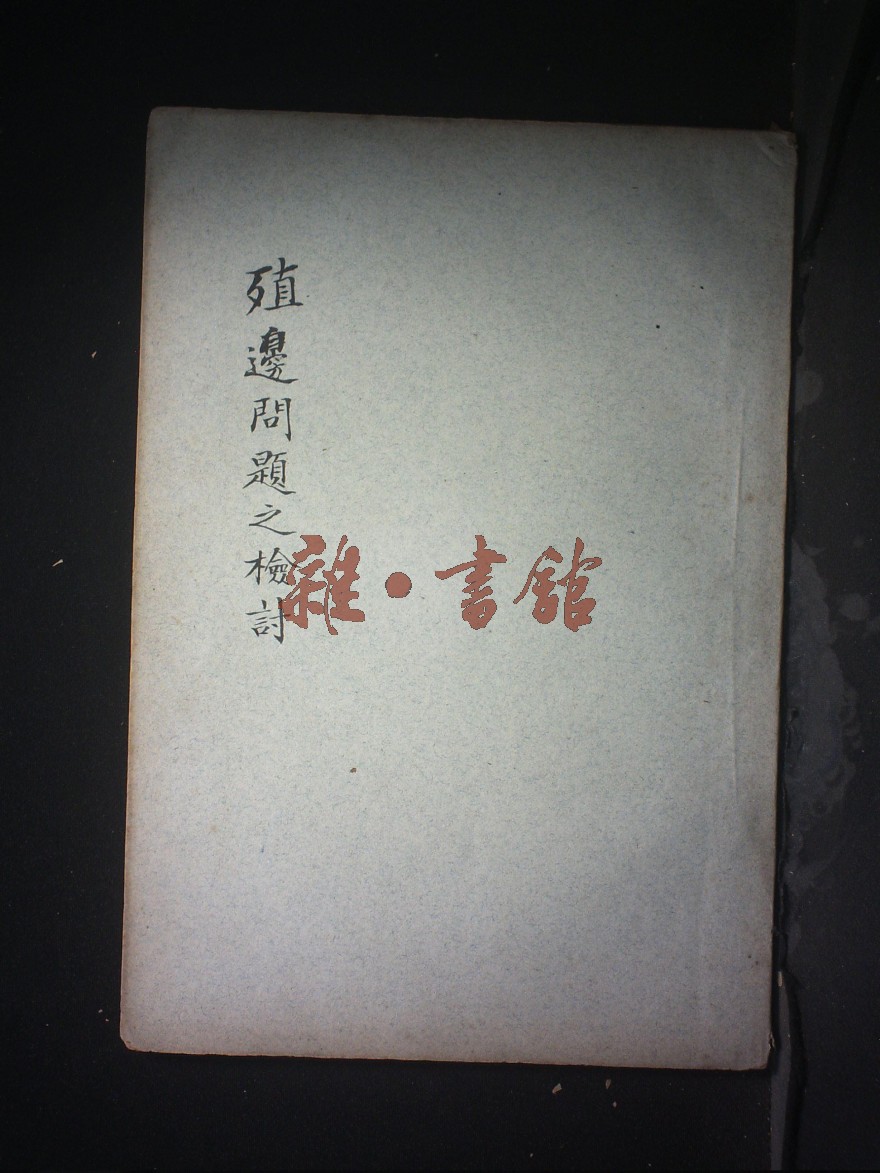 殖邊問題之檢討
雜·書館